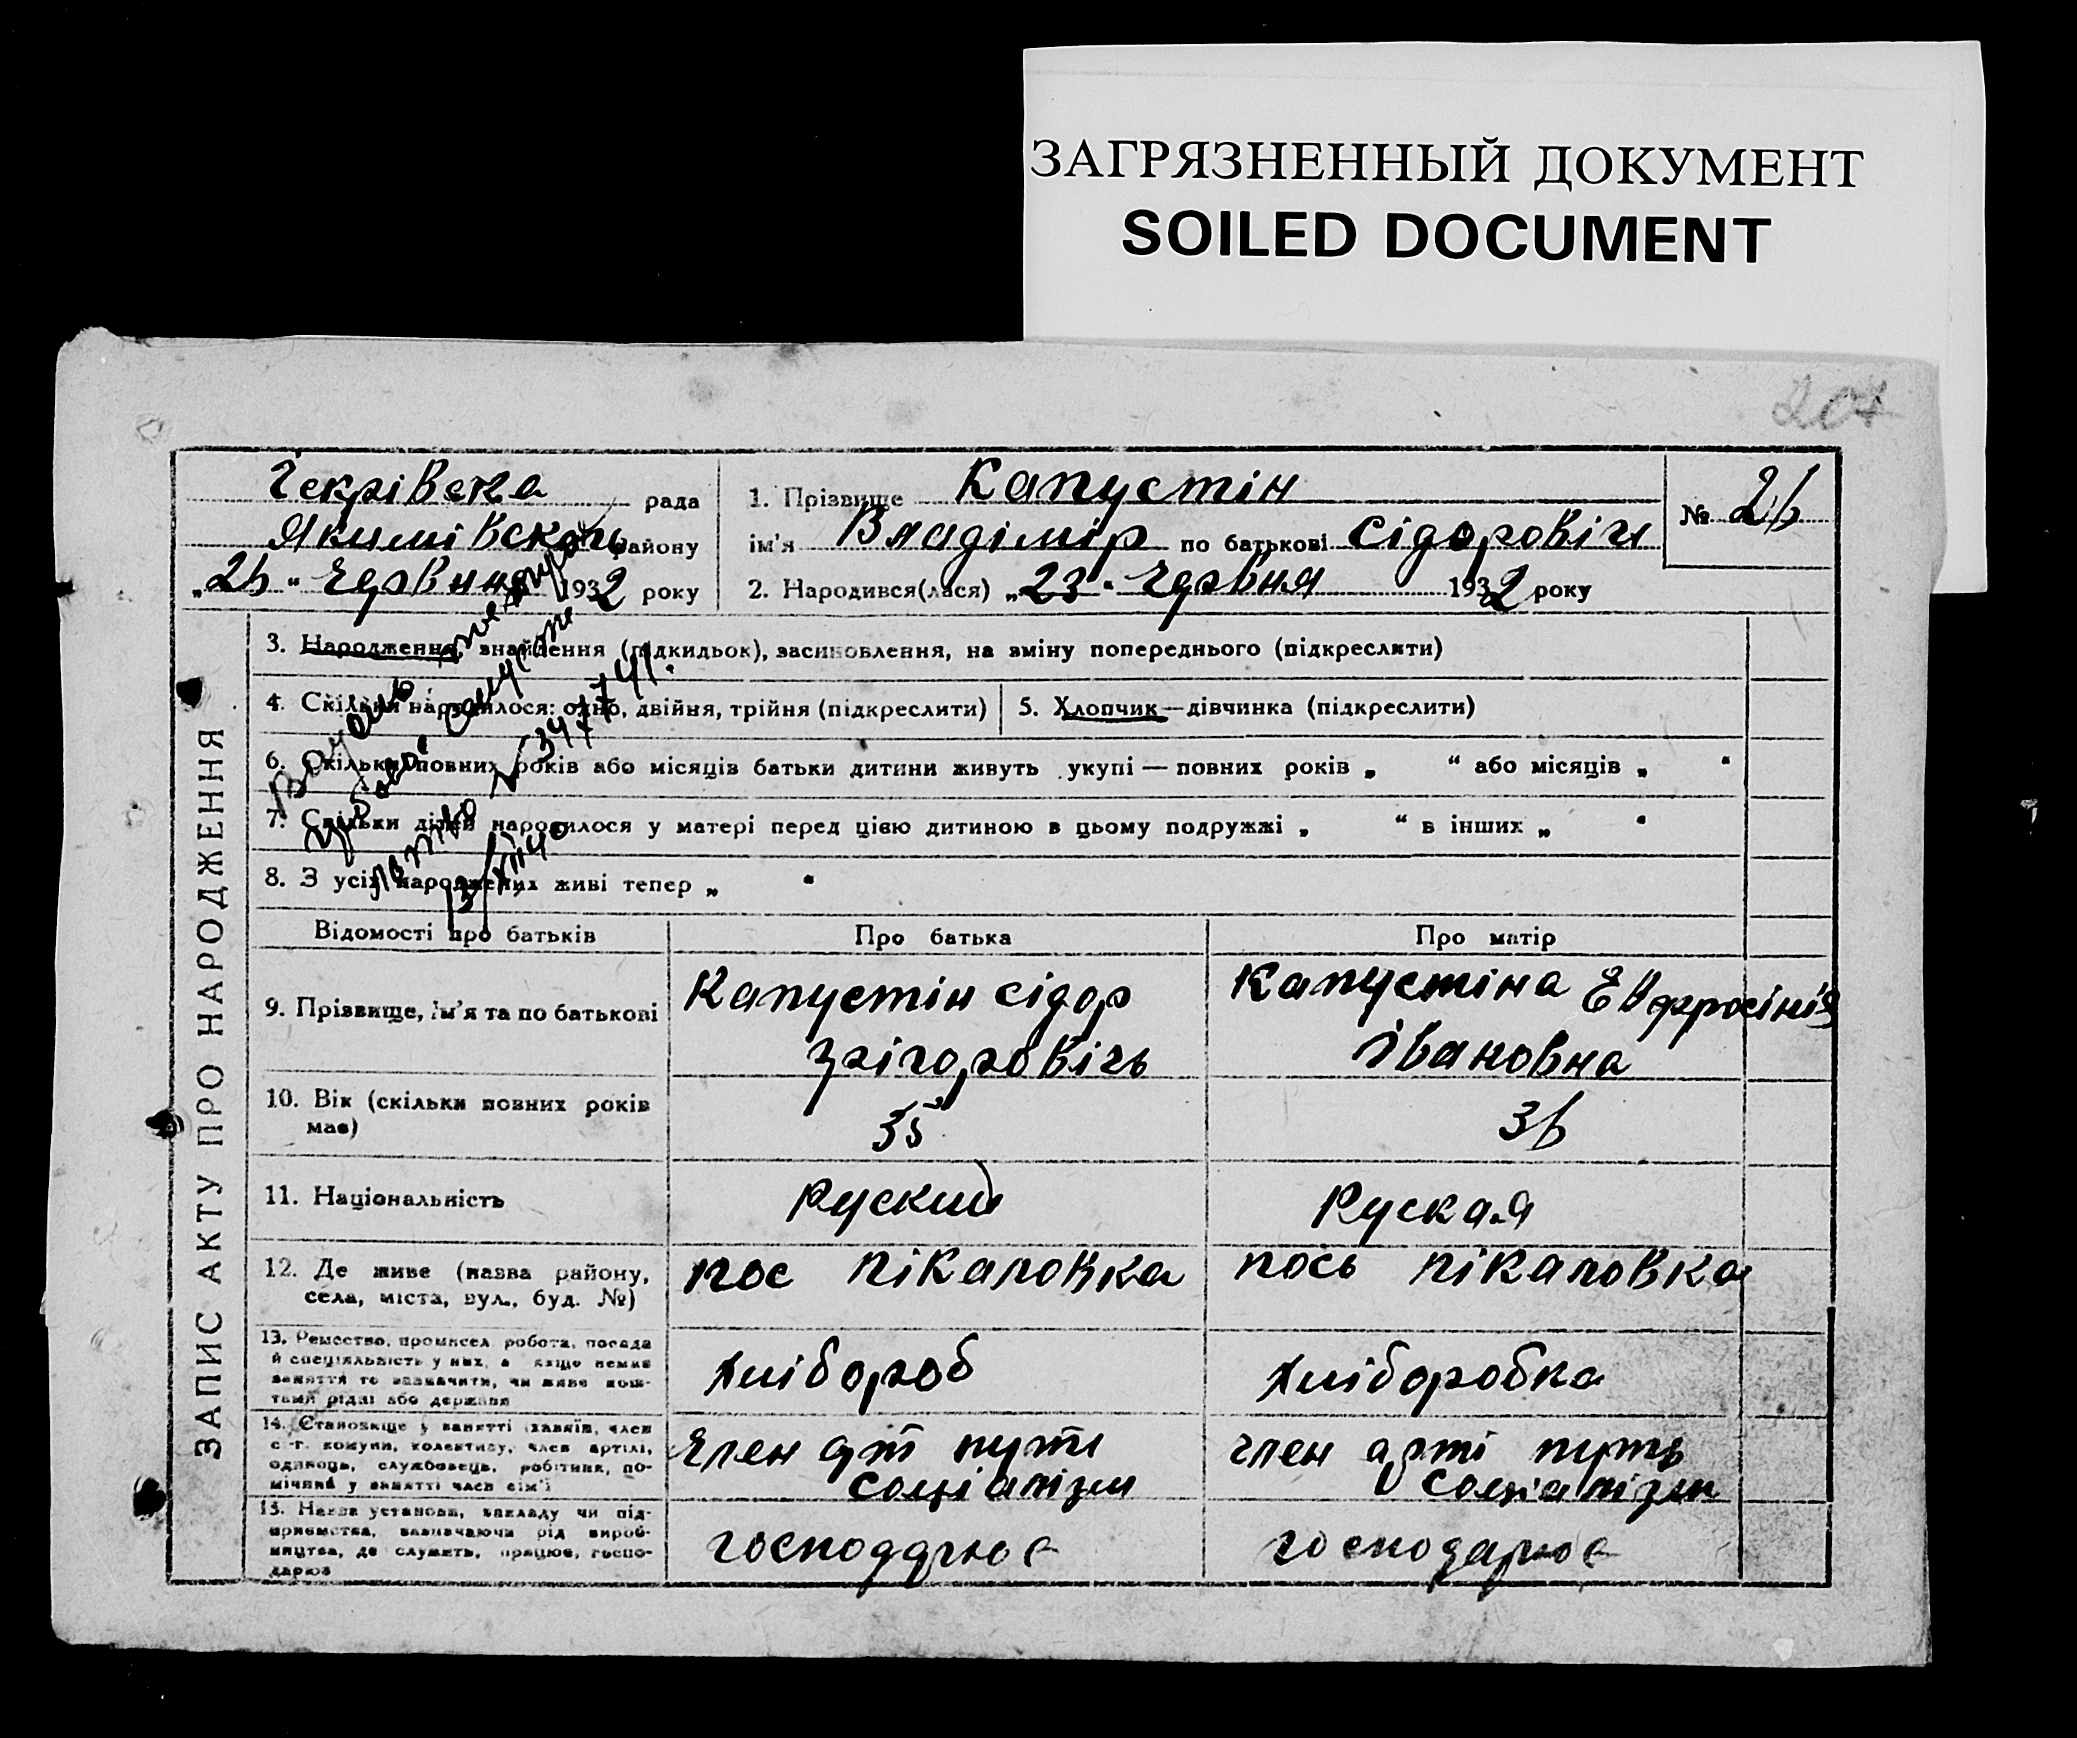 ЗАГРЯЗНЕННЫЙ ДОКУМЕНТ
SOILED DOCUMENT
207
ЗАПИС АКТУ ПРО НАРОДЖЕННЯ
рада
району
„26“ 1932 року
1. Прізвище Капустін
ім'я Владімір по батькові Сідоровіч
№ 26
2. Народився(лася) „23“ Червня 1932 року
3. Народження, знайдення (підкидьок), засиновлення, на зміну попереднього (підкреслити)
4. Скільки народилося: одно, двійня, трійня (підкреслити)
5. Хлопчик—дівчинка (підкреслити)
6. Скільки повних років або місяців батьки дитини живуть укупі — повних років „ “ або місяців „ “
7. Скільки дітей народилося у матері перед цією дитиною в цьому подружжі „ “ в інших „ “
8. З усіх народжених живі тепер „ “
Відомості про батьків
Про батька
Про матір
9. Прізвище, ім'я та по батькові
Капустін Сідор
Грігоровічь
Капустіна Евфросінія
Івановна
10. Вік (скільки повних років
має)
35
36
11. Національність
Руский
Руская
12. Де живе (назва району,
села, міста, вул., буд. №)
пос Пікаловка
пось Пікаловка
13. Ремество, промисел робота, посада
й спеціяльність у них, а якщо немає
заняття то зазначити, чи живе кош-
тами рідні або держави
Хлібороб
Хліборобка
14. Становище у занятті (хазяїн, член
с.-г. комуни, колективу, член артілі,
одинець, службовець, робітник, по-
мічний у занятті член сім'ї
Член арт путь
соціалізм
член арті путь
соціалізм
15. Назва установи, закладу чи під-
приємства, зазначаючи рід вироб-
ництва, де служить, працює, госпо-
дарює
господарює
господарює